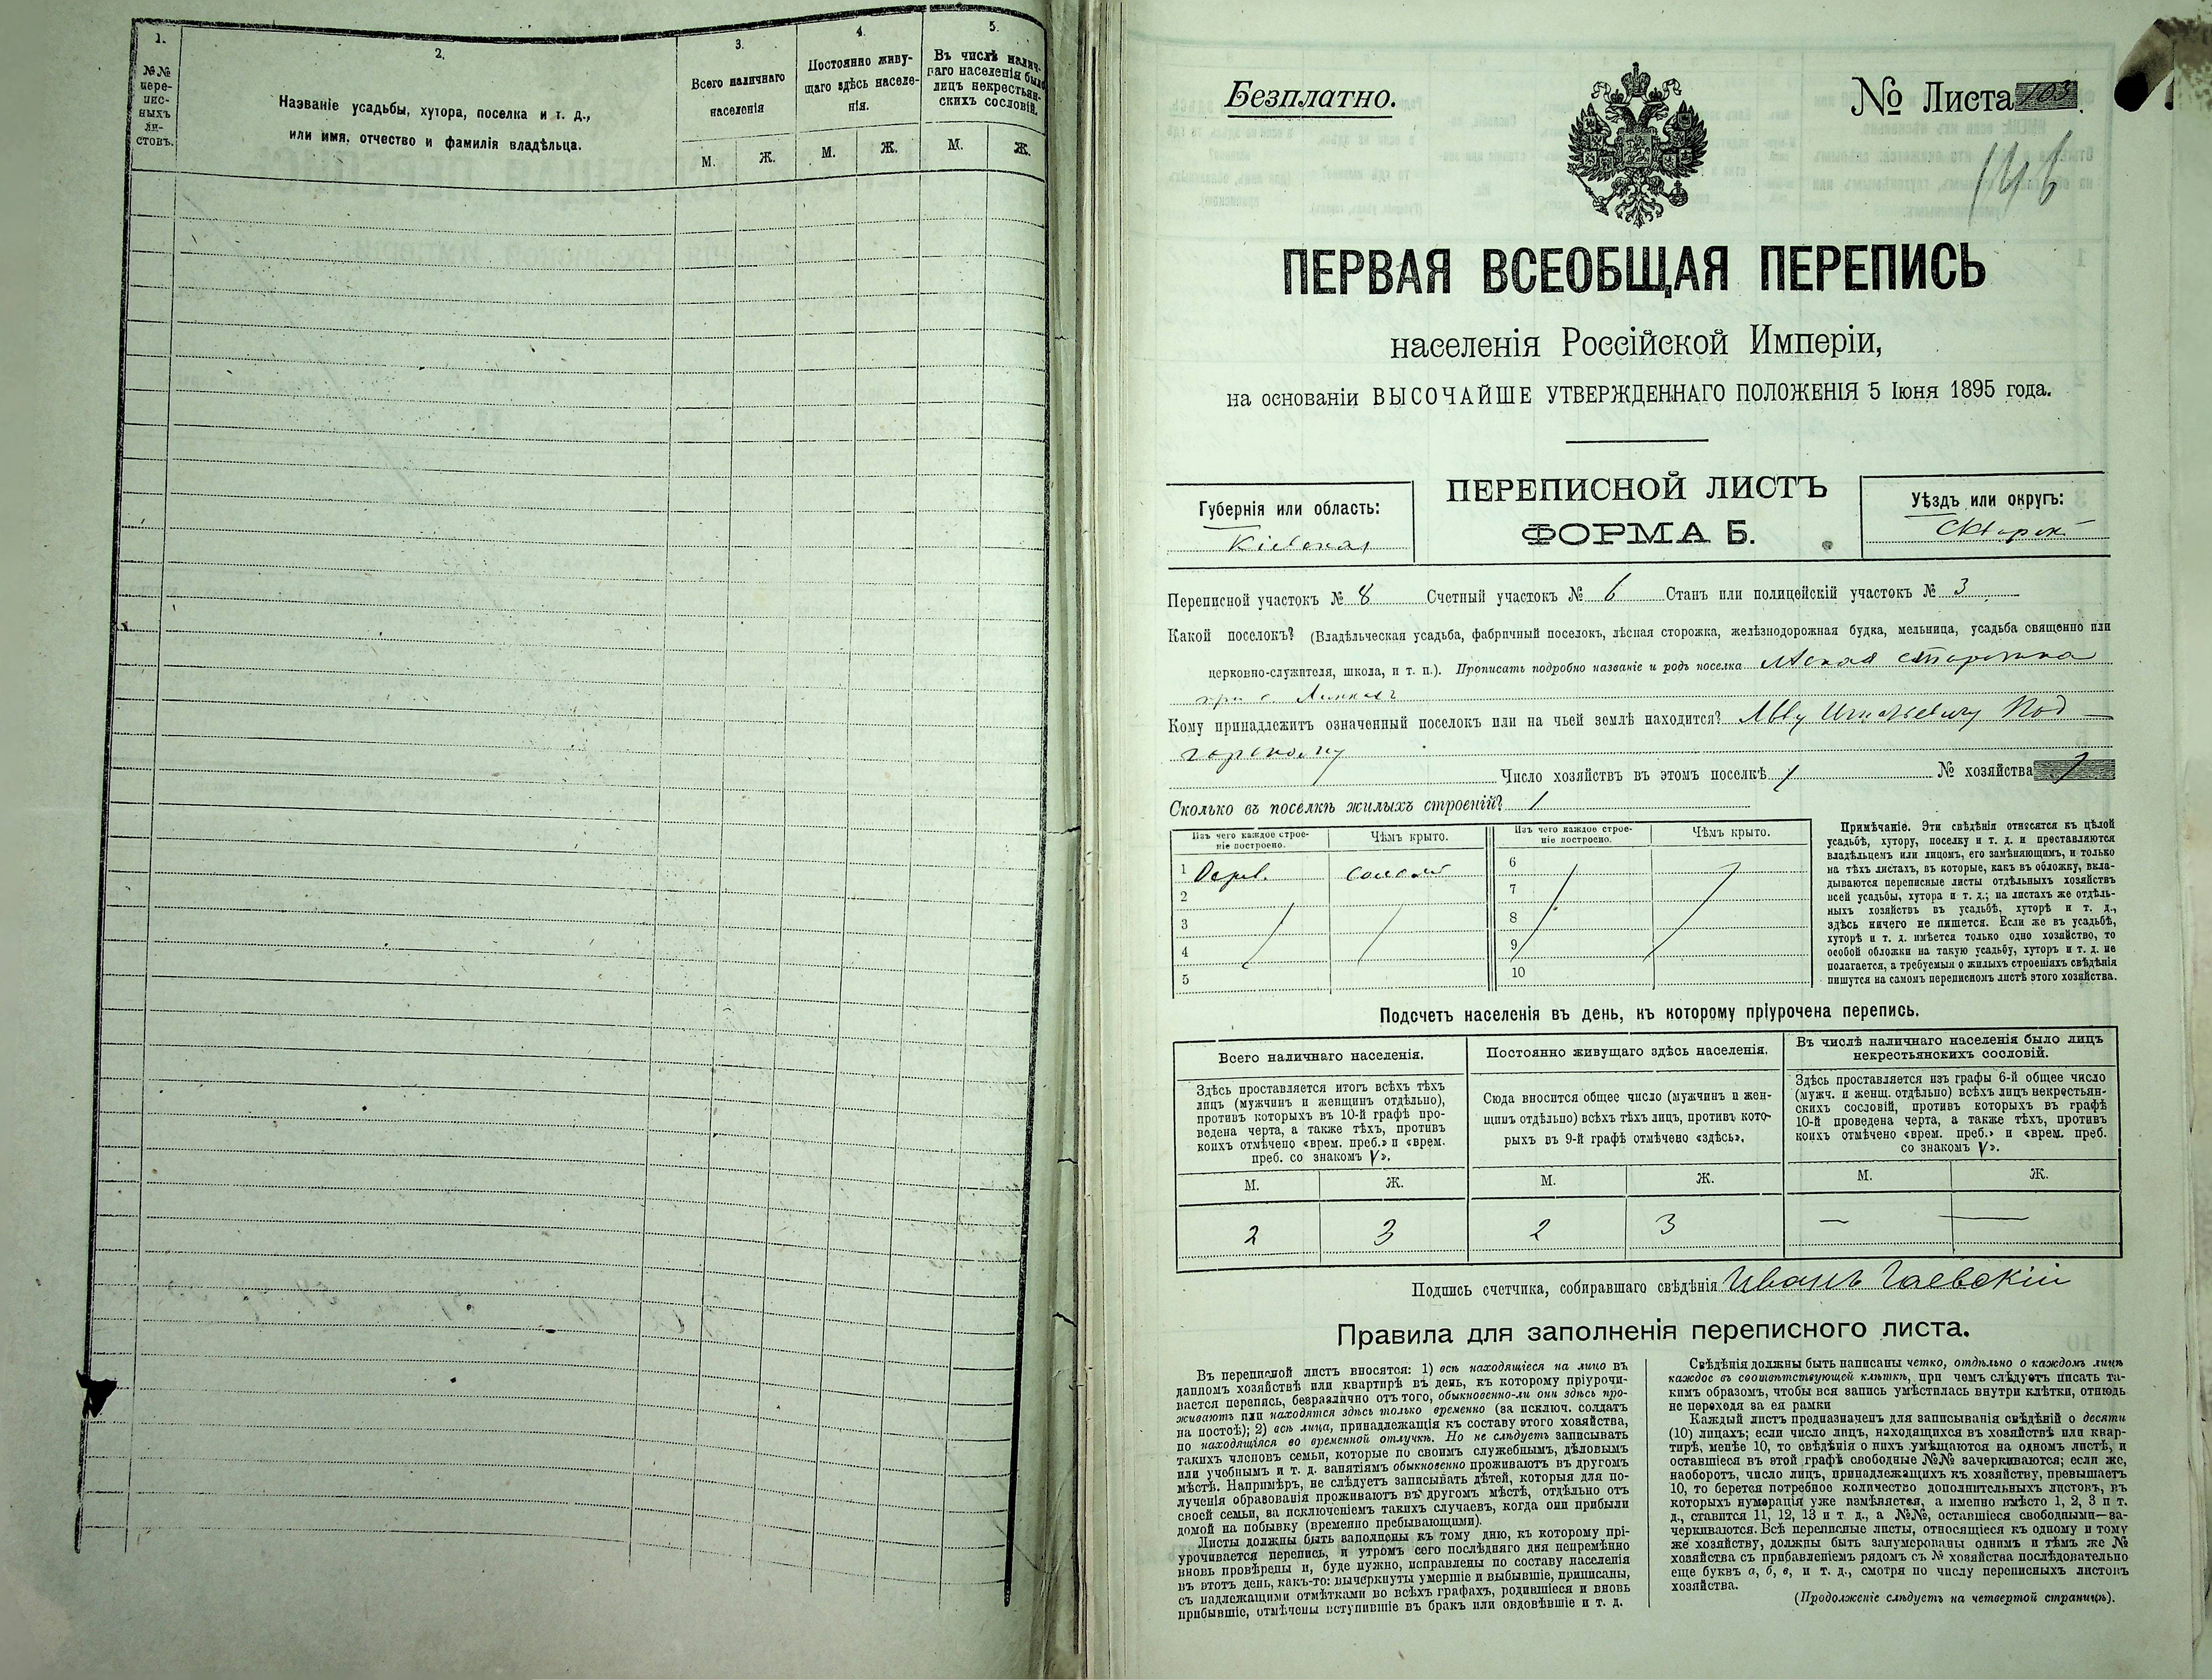 1.
№№
пере-
пис-
ныхъ
ли-
стовъ.
2.
Названіе усадьбы, хутора, поселка и т. д.,
или имя, отчество и фамилія владѣльца.
3.
Всего наличнаго
населенія
М. Ж.
4.
Постоянно живу-
щаго здѣсь населе-
нія.
М. Ж.
5.
Въ числѣ налич-
наго населенія было
лицъ некрестьян-
скихъ сословій.
М. Ж.
Безплатно.
№ Листа 103.
146
ПЕРВАЯ ВСЕОБЩАЯ ПЕРЕПИСЬ
населенія Россійской Имперіи,
на основаніи ВЫСОЧАЙШЕ УТВЕРЖДЕННАГО ПОЛОЖЕНІЯ 5 Іюня 1895 года.
Губернія или область:
Кіевская
ПЕРЕПИСНОЙ ЛИСТЪ
ФОРМА Б.
Уѣздъ или округъ:
Сквирск
Переписной участокъ № 8 Счетный участокъ № 6 Станъ или полицейскій участокъ № 3
Какой поселокъ? (Владѣльческая усадьба, фабричный поселокъ, лѣсная сторожка, желѣзнодорожная будка, мельница, усадьба священно или
церковно-служителя, школа, и т. п.). Прописать подробно названіе и родъ поселка лѣсная сторожка
при с.
Кому принадлежитъ означенный поселокъ или на чьей землѣ находится? Льву Игнатьевичу Под-
горскому
Число хозяйствъ въ этомъ поселкѣ 1 № хозяйства 1
Сколько въ поселкѣ жилыхъ строеній? 1
Изъ чего каждое строе-
ніе построено.
Чѣмъ крыто.
Изъ чего каждое строе-
ніе построено.
Чѣмъ крыто.
1 Дерев. солом 6
2 7
3 8
4 9
5 10
Примѣчаніе. Эти свѣдѣнія относятся къ цѣлой
усадьбѣ, хутору, поселку и т. д. и преставляются
владѣльцемъ или лицомъ, его замѣняющимъ, и только
на тѣхъ листахъ, въ которые, какъ въ обложку, вкла-
дываются переписные листы отдѣльныхъ хозяйствъ
всей усадьбы, хутора и т. д.; на листахъ же отдѣль-
ныхъ хозяйствъ въ усадьбѣ, хуторѣ и т. д.,
здѣсь ничего не пишется. Если же въ усадьбѣ,
хуторѣ и т. д. имѣется только одно хозяйство, то
особой обложки на такую усадьбу, хуторъ и т. д. не
полагается, а требуемыя о жилыхъ строеніяхъ свѣдѣнія
пишутся на самомъ переписномъ листѣ этого хозяйства.
Подсчетъ населенія въ день, къ которому пріурочена перепись.
Всего наличнаго населенія.
Здѣсь проставляется итогъ всѣхъ тѣхъ
лицъ (мужчинъ и женщинъ отдѣльно),
противъ которыхъ въ 10-й графѣ про-
ведена черта, а также тѣхъ, противъ
коихъ отмѣчено «врем. преб.» и «врем.
преб. со знакомъ V».
М. Ж.
2 3
Постоянно живущаго здѣсь населенія.
Сюда вносится общее число (мужчинъ и жен-
щинъ отдѣльно) всѣхъ тѣхъ лицъ, противъ кото-
рыхъ въ 9-й графѣ отмѣчено «здѣсь».
М. Ж.
2 3
Въ числѣ наличнаго населенія было лицъ
некрестьянскихъ сословій.
Здѣсь проставляется изъ графы 6-й общее число
(мужч. и женщ. отдѣльно) всѣхъ лицъ некрестьян-
скихъ сословій, противъ которыхъ въ графѣ
10-й проведена черта, а также тѣхъ, противъ
коихъ отмѣчено «врем. преб.» и «врем. преб.
со знакомъ V».
М. Ж.
— —
Подпись счетчика, собиравшаго свѣдѣнія Иванъ Гаевскій
Правила для заполненія переписного листа.
Въ переписной листъ вносятся: 1) всѣ находящіеся на лицо въ
данномъ хозяйствѣ или квартирѣ въ день, къ которому пріурочи-
вается перепись, безразлично отъ того, обыкновенно-ли они здѣсь про-
живаютъ или находятся здѣсь только временно (за исключ. солдатъ
на постоѣ); 2) всѣ лица, принадлежащія къ составу этого хозяйства,
но находящіяся во временной отлучкѣ. Но не слѣдуетъ записывать
такихъ членовъ семьи, которые по своимъ служебнымъ, дѣловымъ
или учебнымъ и т. д. занятіямъ обыкновенно проживаютъ въ другомъ
мѣстѣ. Напримѣръ, не слѣдуетъ записывать дѣтей, которыя для по-
лученія образованія проживаютъ въ другомъ мѣстѣ, отдѣльно отъ
своей семьи, за исключеніемъ такихъ случаевъ, когда они прибыли
домой на побывку (временно пребывающими).
Листы должны быть заполнены къ тому дню, къ которому прі-
урочивается перепись, и утромъ сего послѣдняго дня непремѣнно
вновь провѣрены и, буде нужно, исправлены по составу населенія
въ этотъ день, какъ-то: вычеркнуты умершіе и выбывшіе, приписаны,
съ надлежащими отмѣтками во всѣхъ графахъ, родившіеся и вновь
прибывшіе, отмѣчены вступившіе въ бракъ или овдовѣвшіе и т. д.
Свѣдѣнія должны быть написаны четко, отдѣльно о каждомъ лицѣ
каждое въ соотвѣтствующей клѣткѣ, при чемъ слѣдуетъ писать та-
кимъ образомъ, чтобы вся запись умѣстилась внутри клѣтки, отнюдь
не переходя за ея рамки
Каждый листъ предназначенъ для записыванія свѣдѣній о десяти
(10) лицахъ; если число лицъ, находящихся въ хозяйствѣ или квар-
тирѣ, менѣе 10, то свѣдѣнія о нихъ умѣщаются на одномъ листѣ, и
оставшіеся въ этой графѣ свободные №№ зачеркиваются; если же,
наоборотъ, число лицъ, принадлежащихъ къ хозяйству, превышаетъ
10, то берется потребное количество дополнительныхъ листовъ, въ
которыхъ нумерація уже измѣняется, а именно вмѣсто 1, 2, 3 и т.
д., ставится 11, 12, 13 и т. д., а №№, оставшіеся свободными—за-
черкиваются. Всѣ переписные листы, относящіеся къ одному и тому
же хозяйству, должны быть занумерованы однимъ и тѣмъ же №
хозяйства съ прибавленіемъ рядомъ съ № хозяйства послѣдовательно
еще буквъ а, б, в, и т. д., смотря по числу переписныхъ листовъ
хозяйства.
(Продолженіе слѣдуетъ на четвертой страницѣ).